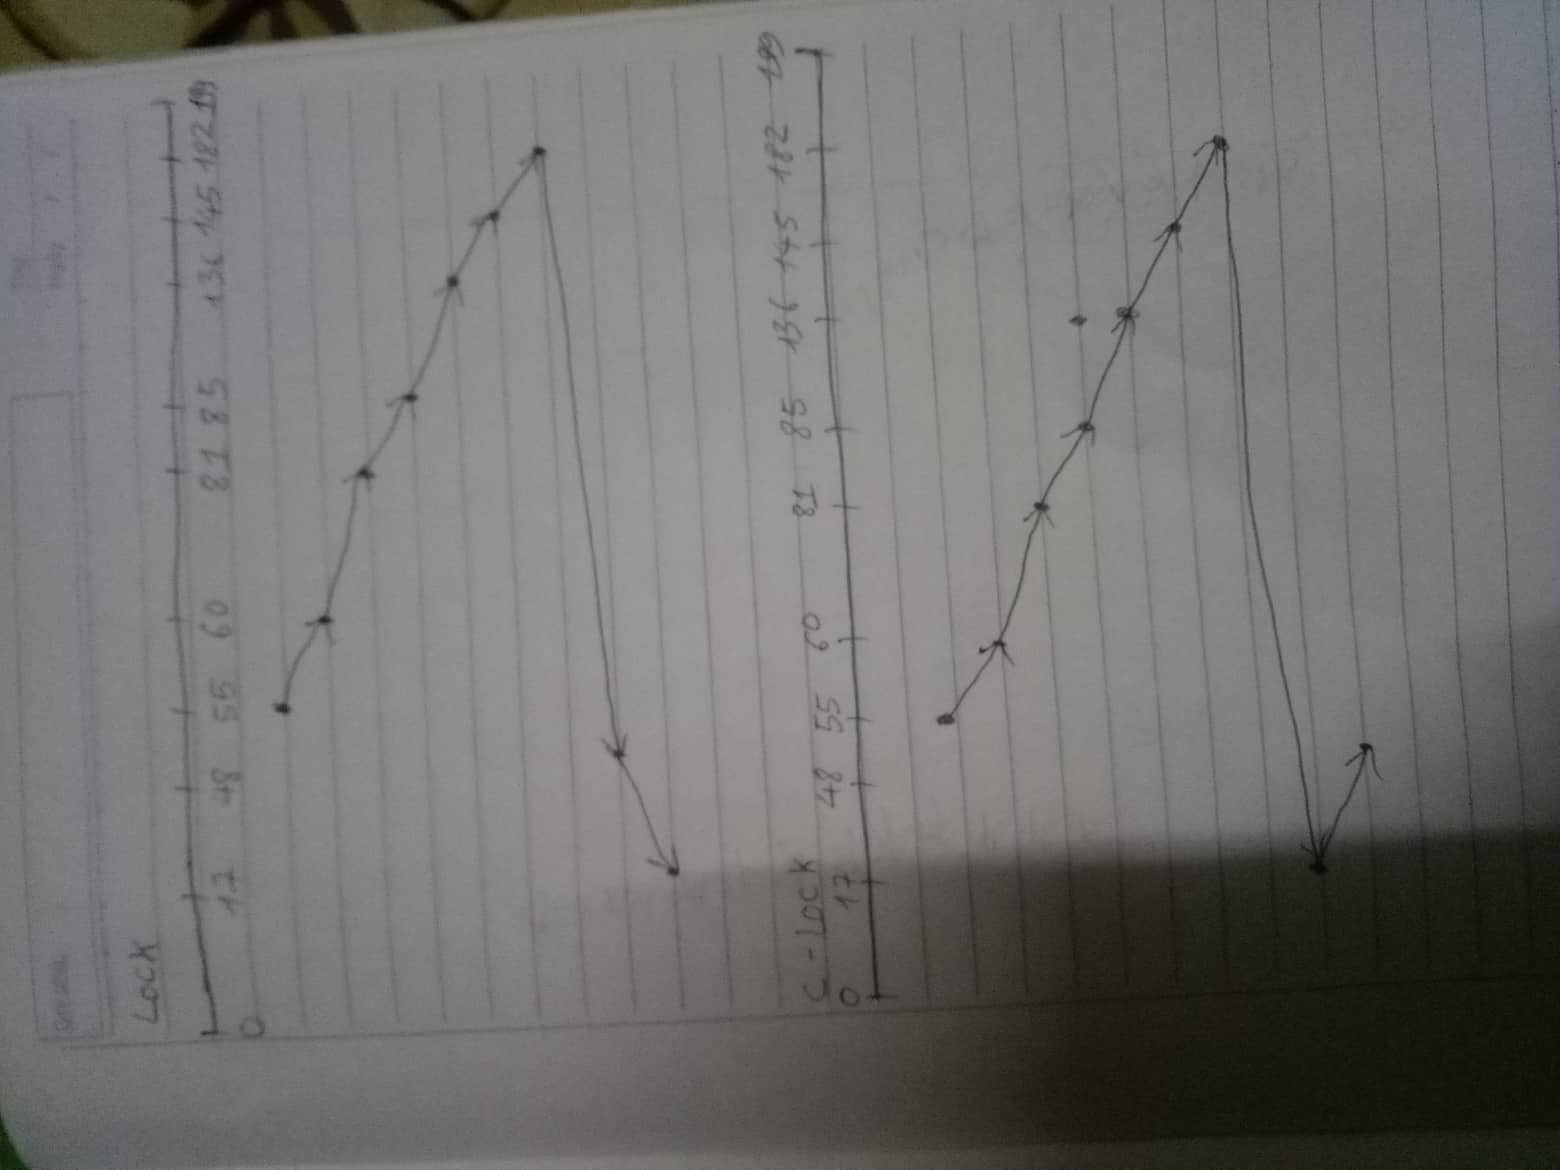 LOCK
0 17 48 55 60 81 85 136 145 182 199
C-LOCK
0 17 48 55 60 81 85 136 145 182 199